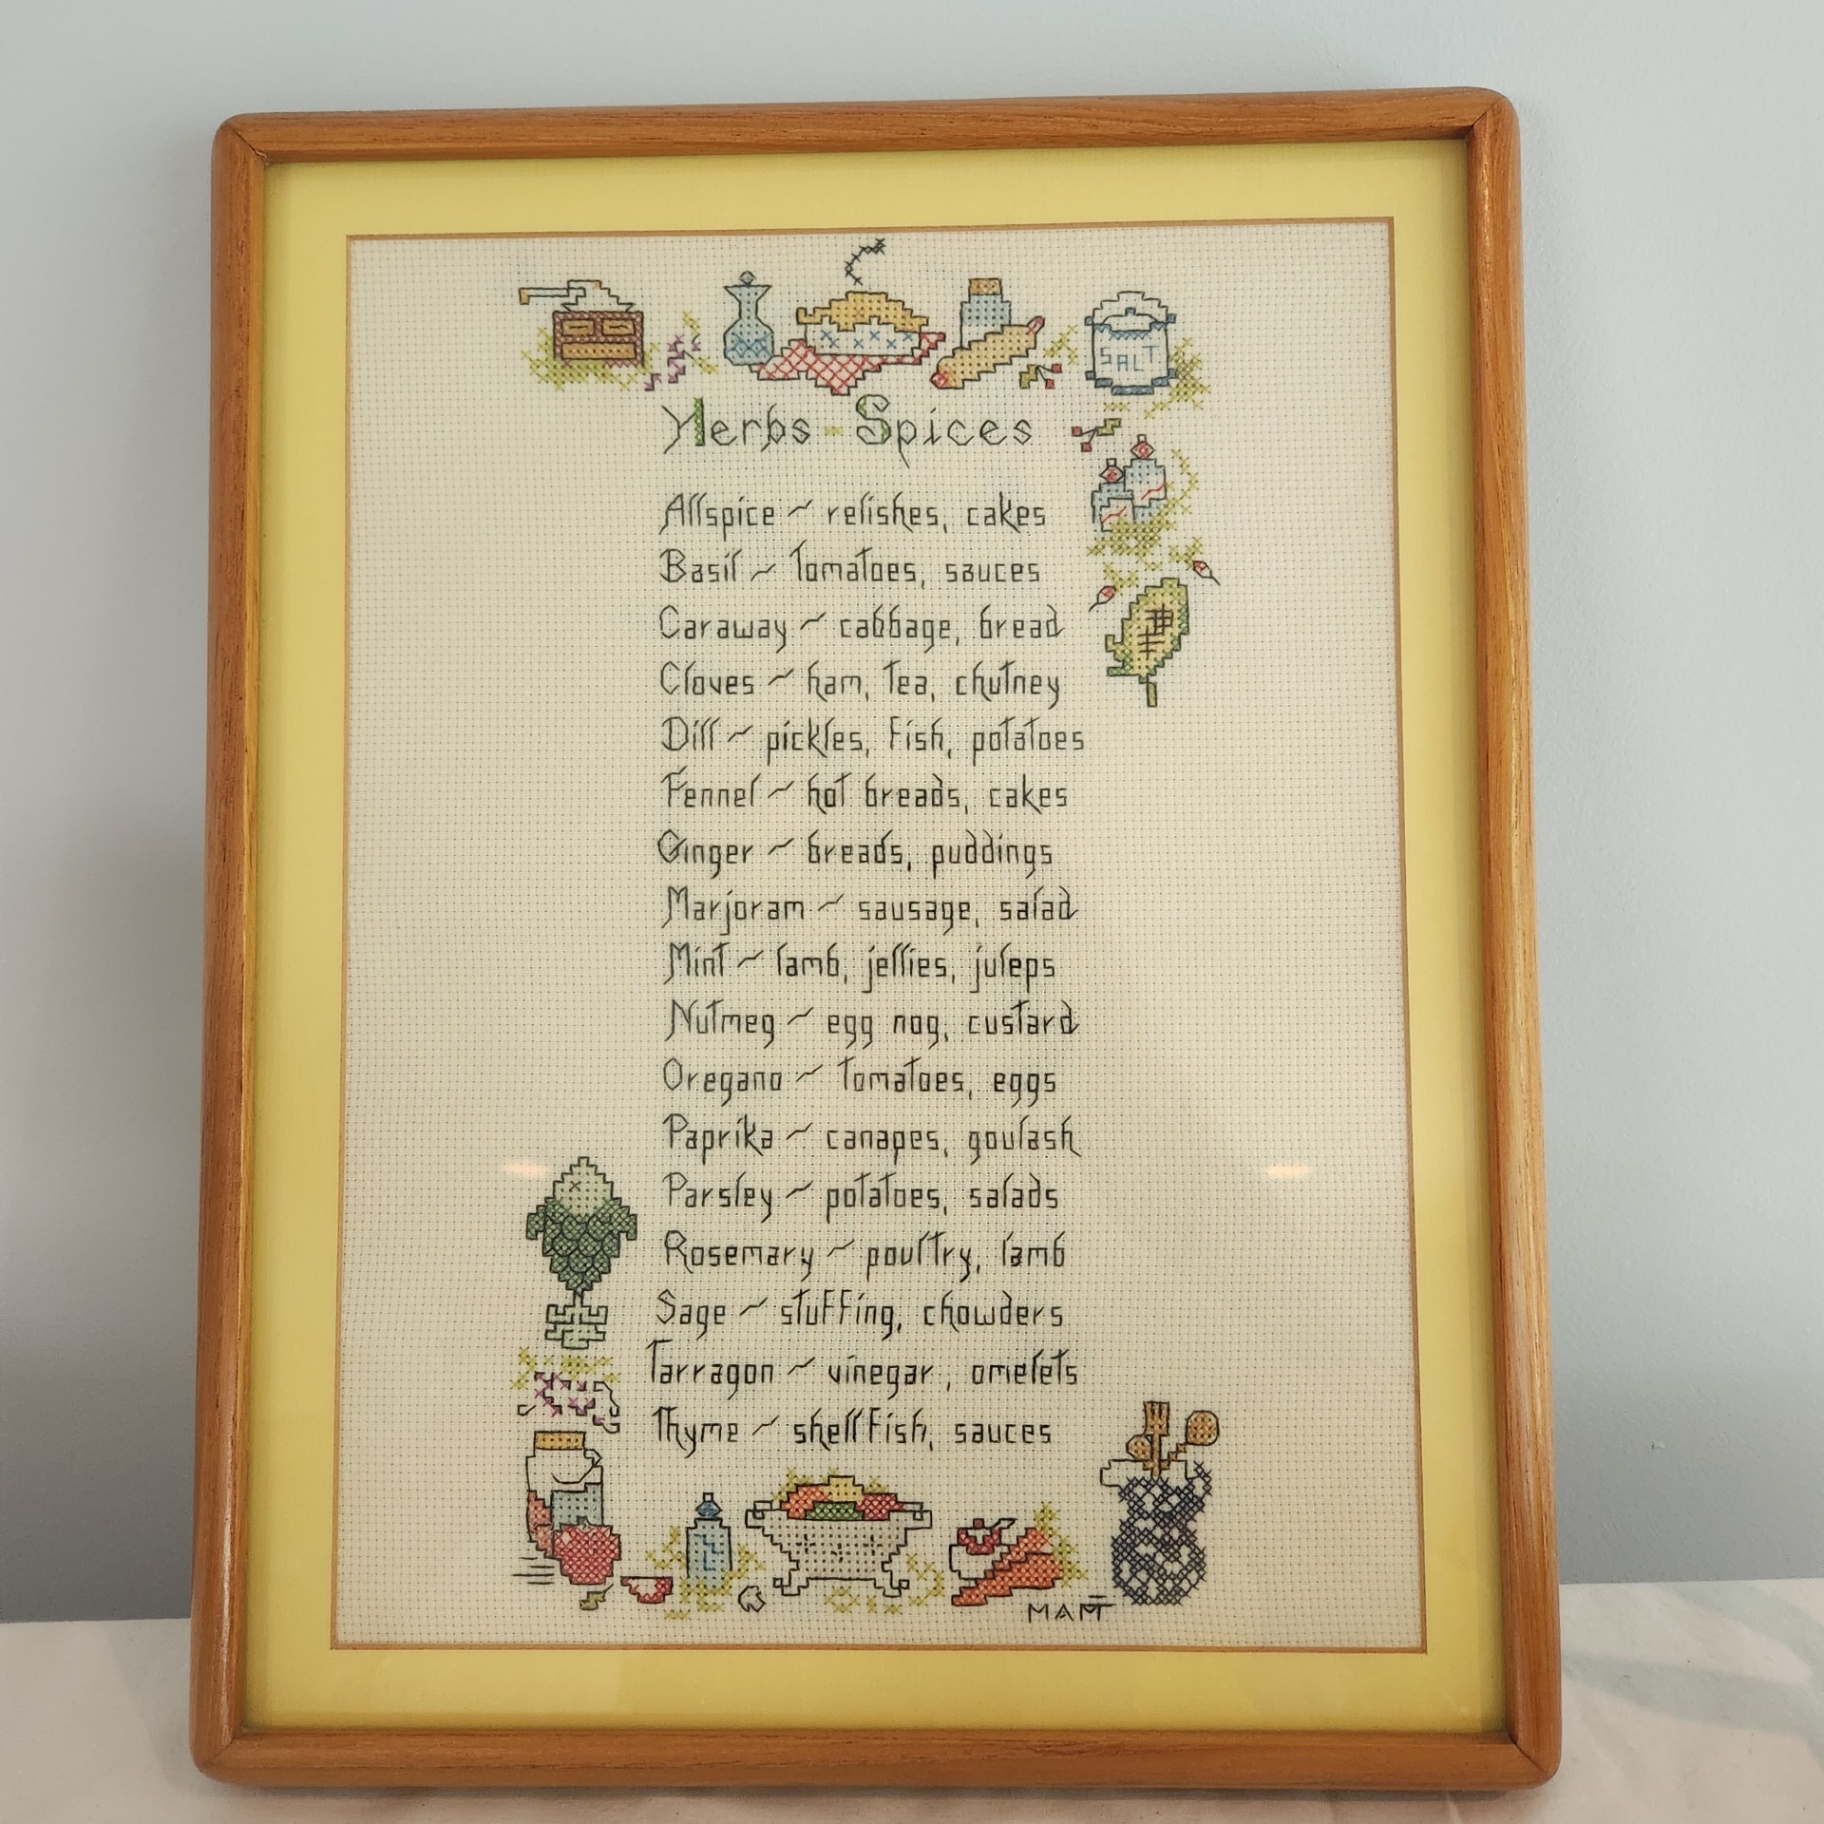 SALT
Herbs - Spices
Allspice ~ relishes, cakes
Basil ~ tomatoes, sauces
Caraway ~ cabbage, bread
Cloves ~ ham, tea, chutney
Dill ~ pickles, fish, potatoes
Fennel ~ hot breads, cakes
Ginger ~ breads, puddings
Marjoram ~ sausage, salad
Mint ~ lamb, jellies, juleps
Nutmeg ~ egg nog, custard
Oregano ~ tomatoes, eggs
Paprika ~ canapes, goulash
Parsley ~ potatoes, salads
Rosemary ~ poultry, lamb
Sage ~ stuffing, chowders
Tarragon ~ vinegar, omelets
Thyme ~ shellfish, sauces
MAM